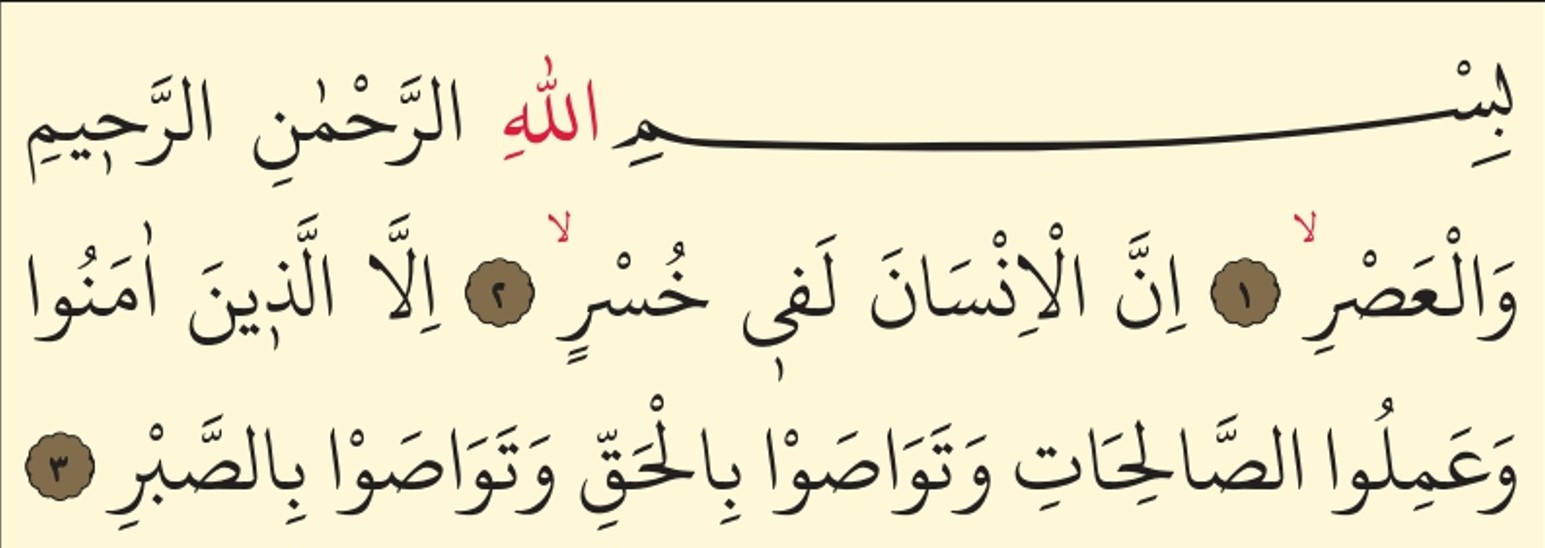 بِسْمِ اللّٰهِ الرَّحْمٰنِ الرَّح۪يمِ
وَالْعَصْرِۙ ١ اِنَّ الْاِنْسَانَ لَف۪ي خُسْرٍۙ ٢ اِلَّا الَّذ۪ينَ اٰمَنُوا
وَعَمِلُوا الصَّالِحَاتِ وَتَوَاصَوْا بِالْحَقِّ وَتَوَاصَوْا بِالصَّبْرِ ٣